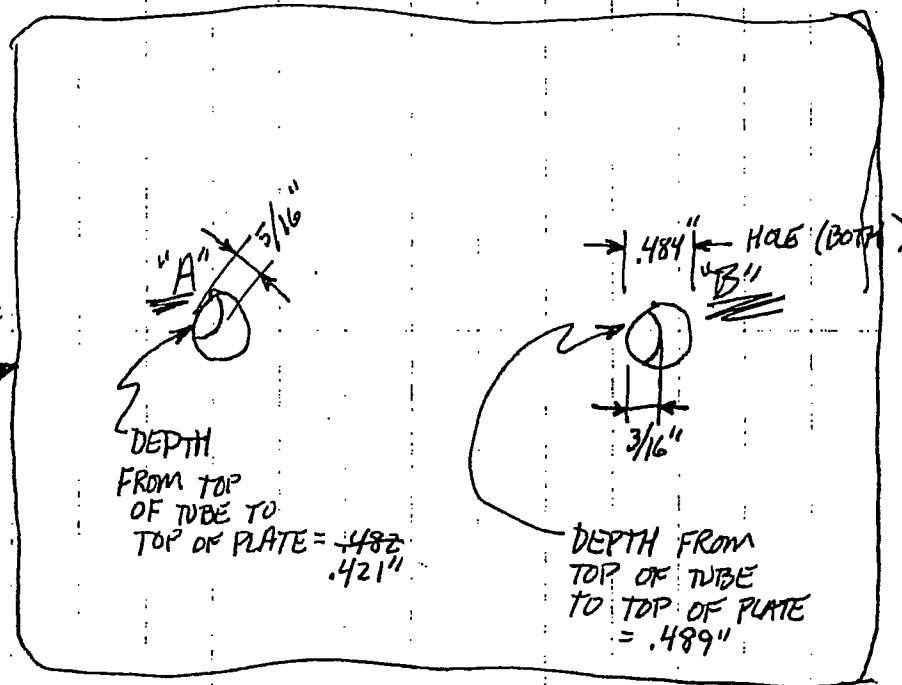 "A"
5/16"
DEPTH
FROM TOP
OF TUBE TO
TOP OF PLATE = .482
.421"
.484" HOLE (BOTH)
"B"
3/16"
DEPTH FROM
TOP OF TUBE
TO TOP OF PLATE
= .489"